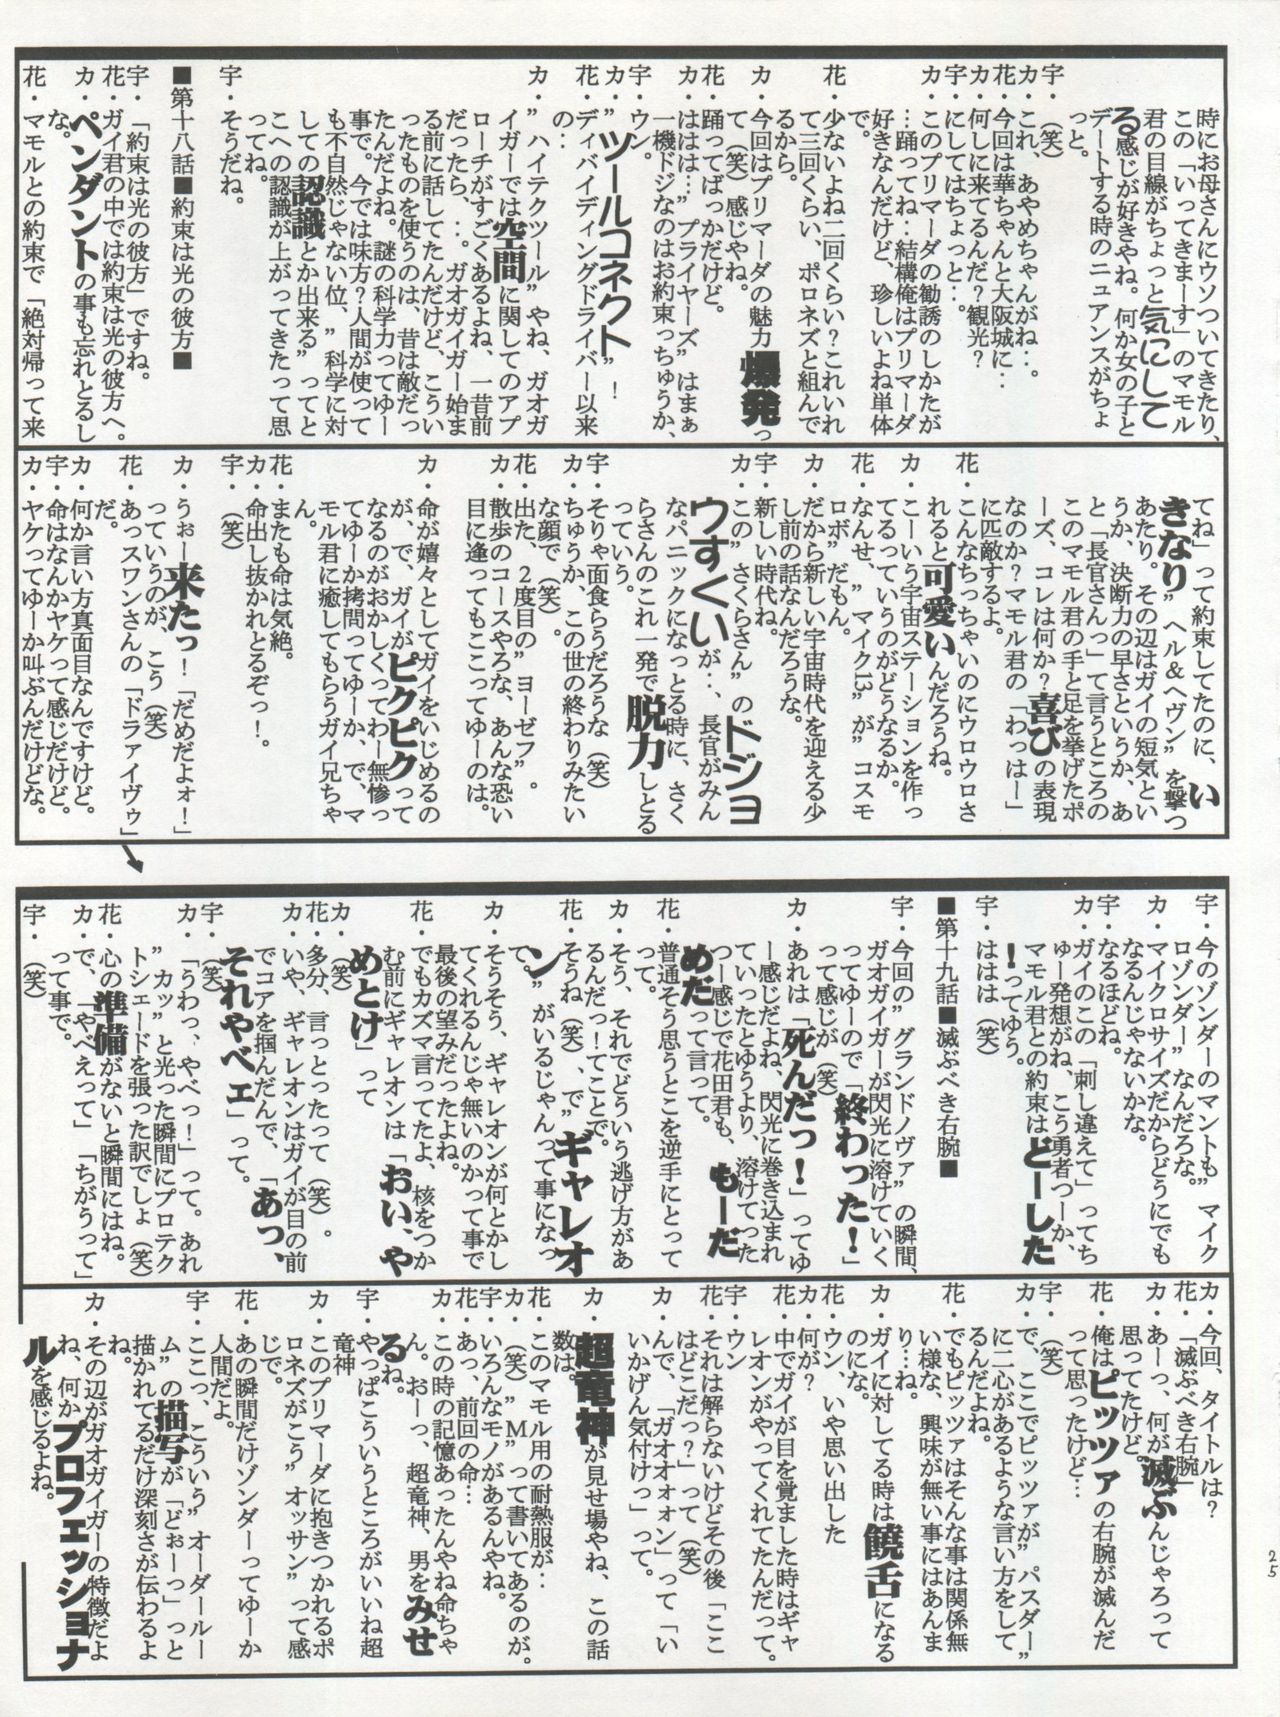 時にお母さんにウソついてきたり、
この「いってきまーす」のマモル
君の目線がちょっと気にして
る感じが好きやね。何か女の子と
デートする時のニュアンスがちょ
っと。
宇・(笑)
カ・これ、あやめちゃんがね‥。
花・今回は華ちゃんと大阪城に‥
カ・何しに来てるんだ?観光?
宇・にしてはちょっと‥。
カ・このプリマーダの勧誘のしかたが
…踊ってね‥結構俺はプリマーダ
好きなんだけど、珍しいよね単体
花・少ないよね二回くらい?これいれ
て三回くらい、ポロネズと組んで
るから。
カ・今回はプリマーダの魅力爆発っ
て(笑)感じやね。
花・踊ってばっかだけど。
カ・ははは…”プライヤーズ”はまぁ
一機ドジなのはお約束っちゅうか、
宇・ウン。
カ・”ツールコネクト”！
花・ディバイディングドライバー以来
の‥
カ・”ハイテクツール”やね、ガオガ
イガーでは空間に関してのアプ
ローチがすごくあるよね、一昔前
だったら、‥。ガオガイガー始ま
る前に話してたんだけど、こうい
ったものを使うのは、昔は敵だっ
たんだよね。謎の科学力ってゆー
事で。今では味方?人間が使って
も不自然じゃない位、”科学に対
しての認識とか出来る”ってと
こへの認識が上がってきたって思
ってね。
宇・そうだね。
■第十八話■約束は光の彼方■
宇・「約束は光の彼方」ですね。
花・ガイ君の中では約束は光の彼方へ。
カ・ペンダントの事も忘れとるし
な。
花・マモルとの約束で「絶対帰って来
てね」って約束してたのに、い
きなり”ヘル＆ヘヴン”を撃つ
あたり。その辺はガイの短気とい
うか、決断力の早さというか、あ
と「長官さんっ」て言うところの
このマモル君の手と足を挙げたポ
ーズ、コレは何か?喜びの表現
なのか?マモル君の「わっはー」
に匹敵するよ。
花・こんなちっちゃいのにウロウロさ
れると可愛いんだろうね。
カ・こーいう宇宙ステーションを作っ
てるっていうのがどうなるか。
花・なんせ、”マイク13”が”コスモ
ロボ”だもん。
カ・だから新しい宇宙時代を迎える少
し前の話なんだろうな。
宇・新しい時代ね。
カ・この”さくらさん”のドジョ
ウすくいが‥、長官がみん
なパニックになっとる時に、さく
らさんのこれ一発で脱力しとる
っていう。
宇・そりゃ面食らうだろうな(笑)
カ・ちゅうか、この世の終わりみたい
な顔で(笑)
花・出た、2度目の”ヨーゼフ”。
カ・散歩のコースやろな、あんな恐い
目に逢ってもここってゆーのは。
カ・命が嬉々としてガイをいじめるの
が、で、ガイがピクピクって
なるのがおかしくってわー無惨っ
てゆーか拷問ってゆーか、で、マ
モル君に癒してもらうガイ兄ちゃ
ん。
花・またも命は気絶。
カ・命出し抜かれとるぞっ！。
宇・(笑)
カ・うぉー来たっ！「だめだよォ！」
っていうのが、こう(笑)
花・あっスワンさんの「ドラァイヴゥ」
だ。
カ・何か言い方真面目なんですけど。
宇・命はなんかヤケって感じだけど。
カ・ヤケってゆーか叫ぶんだけどな。
宇・今のゾンダーのマントも”マイク
ロゾンダー”なんだろな。
カ・マイクロサイズだからどうにでも
なるんじゃないかな。
宇・なるほどね。
カ・ガイのこの「刺し違えて」ってち
ゅー発想がね、こう勇者つーか、
マモル君との約束はどーした
！ってゆう。
宇・ははは(笑)
■第十九話■滅ぶべき右腕■
宇・今回の”グランドノヴァ”の瞬間、
ガオガイガーが閃光に溶けていく
ってゆーので「終わった！」
って感じが(笑)
カ・あれは「死んだっ！」ってゆ
ー感じだよね、閃光に巻き込まれ
ていったとゆうより、溶けてった
つー感じで花田君も、もーだ
めだって言って。
花・普通そう思うとこを逆手にとって
って。
カ・そう、それでどういう逃げ方があ
るんだっ！てことで。
花・そうね(笑)、で”ギャレオ
ン”がいるじゃんって事になっ
て。
カ・そうそう、ギャレオンが何とかし
てくれるんじゃ無いのかって事で
最後の望みだったよね。
花・でもカズマ言ってたよ、核をつか
む前にギャレオンは「おい、や
めとけ」って
カ・(笑)
花・多分、言っとったって(笑)。
カ・いや、ギャレオンはガイが目の前
でコアを掴んだんで、「あっ、
それやベェ」って。
宇・(笑)
カ・「うわっ、やべっ！」って。あれ
”カッ”と光った瞬間にプロテク
トシェードを張った訳でしょ(笑)
花・心の準備がないと瞬間にはね。
カ・で、「やべえって」「ちがうって」
って事で。
宇・(笑)
カ・今回、タイトルは?
花・「滅ぶべき右腕」
カ・あーっ、何が滅ぶんじゃろって
思ってたけど。
花・俺はピッツァの右腕が滅んだ
って思ったけど…
宇・(笑)
カ・で、ここでピッツァが”パスダー”
に二心があるような言い方をして
るんだよね。
花・でもピッツァはそんな事は関係無
い様な、興味が無い事にはあんま
り…ね。
カ・ガイに対してる時は饒舌になる
のにな。
花・ウン、いや思い出した
カ・何が?
花・中でガイが目を覚ました時はギャ
レオンがやってくれてたんだって。
宇・ウン
花・それは解らないけどその後「ここ
はどこだっ?」って(笑)
カ・んで、「ガオオォォン」って「い
いかげん気付けっ」って。
カ・超竜神が見せ場やね、この話
数は。
花・このマモル用の耐熱服が‥
カ・(笑)”M”って書いてあるのが。
宇・いろんなモノがあるんやね。
花・あっ、前回の命…
カ・この時の記憶あったんやね命ちゃ
ん。おーっ、超竜神、男をみせ
るね。
宇・やっぱこういうところがいいね超
竜神
カ・このプリマーダに抱きつかれるポ
ロネズがこう”オッサン”って感
じで。
花・あの瞬間だけゾンダーってゆーか
人間だよ。
宇・ここっ、こういう”オーダールー
ム”の描写が「どぉーっ」っと
描かれてるだけ深刻さが伝わるよ
ね。
カ・その辺がガオガイガーの特徴だよ
ね、何かプロフェッショナ
ルを感じるよね。
25